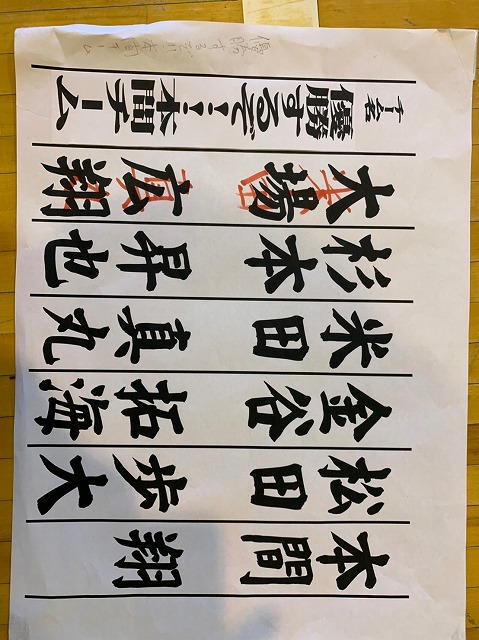 本間 翔
松田 歩大
金谷 拓海
米田 真丸
杉本 昇也
大場 広翔
チーム名 優勝するぞ!!本間チーム
優勝するぞ!!本間チーム